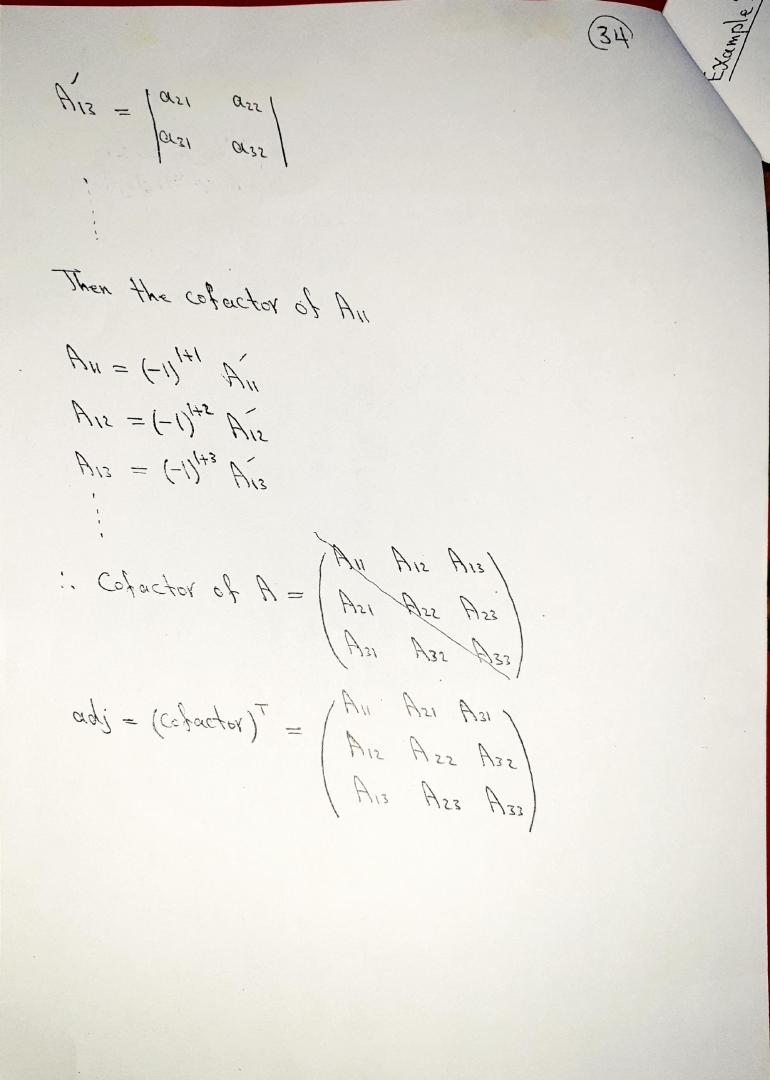 34
Example
A′13 = | a21 a22 |
| a31 a32 |
Then the cofactor of A11
A11 = (-1)^1+1 A′11
A12 = (-1)^1+2 A′12
A13 = (-1)^1+3 A′13
∴ Cofactor of A = ( A11 A12 A13
A21 A22 A23
A31 A32 A33 )
adj = (Cofactor)^T = ( A11 A21 A31
A12 A22 A32
A13 A23 A33 )